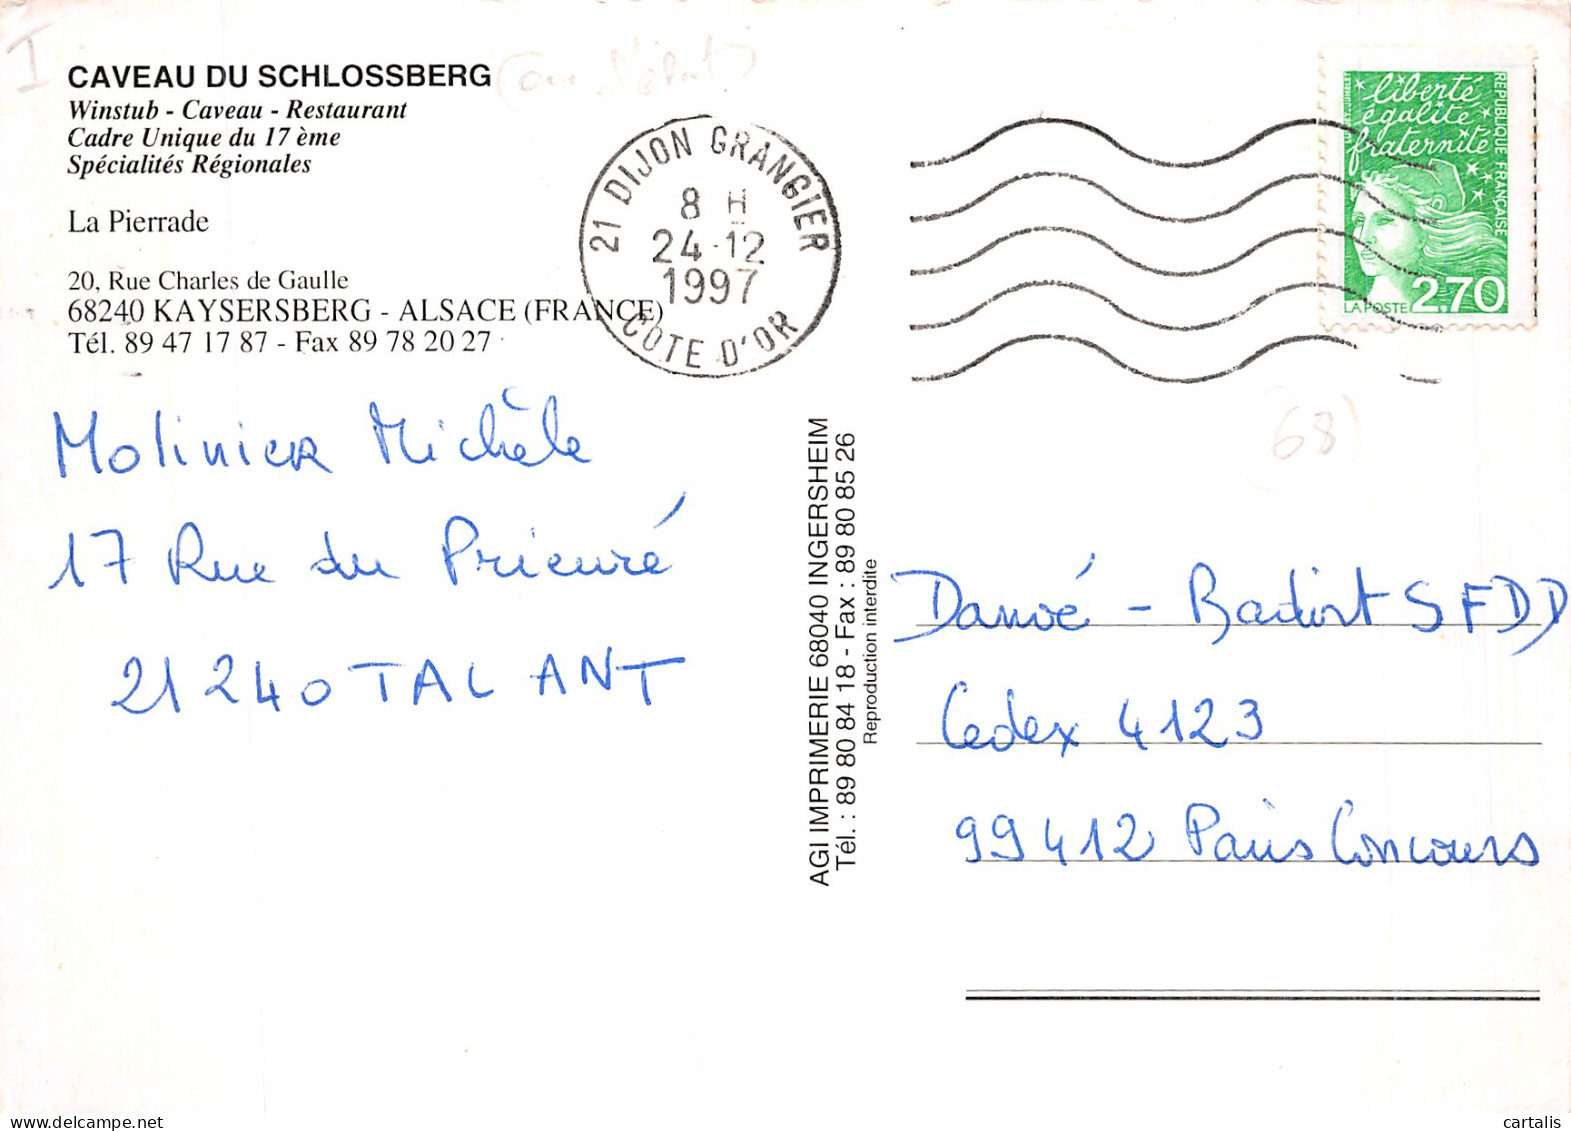 I
CAVEAU DU SCHLOSSBERG
Winstub - Caveau - Restaurant
Cadre Unique du 17 ème
Spécialités Régionales
La Pierrade
20, Rue Charles de Gaulle
68240 KAYSERSBERG - ALSACE (FRANCE)
Tél. 89 47 17 87 - Fax 89 78 20 27
21 DIJON GRANGIER
8 H
24-12
1997
COTE D'OR
liberté
égalité
fraternité
RÉPUBLIQUE FRANÇAISE
LA POSTE 2,70
(68)
Molinier Michèle
17 Rue du Prieuré
21240 TALANT
AGI IMPRIMERIE 68040 INGERSHEIM
Tél. : 89 80 84 18 - Fax : 89 80 85 26
Reproduction interdite
Danoé - Badoit SFDD
Cedex 4123
99412 Paris Concours
cartalis